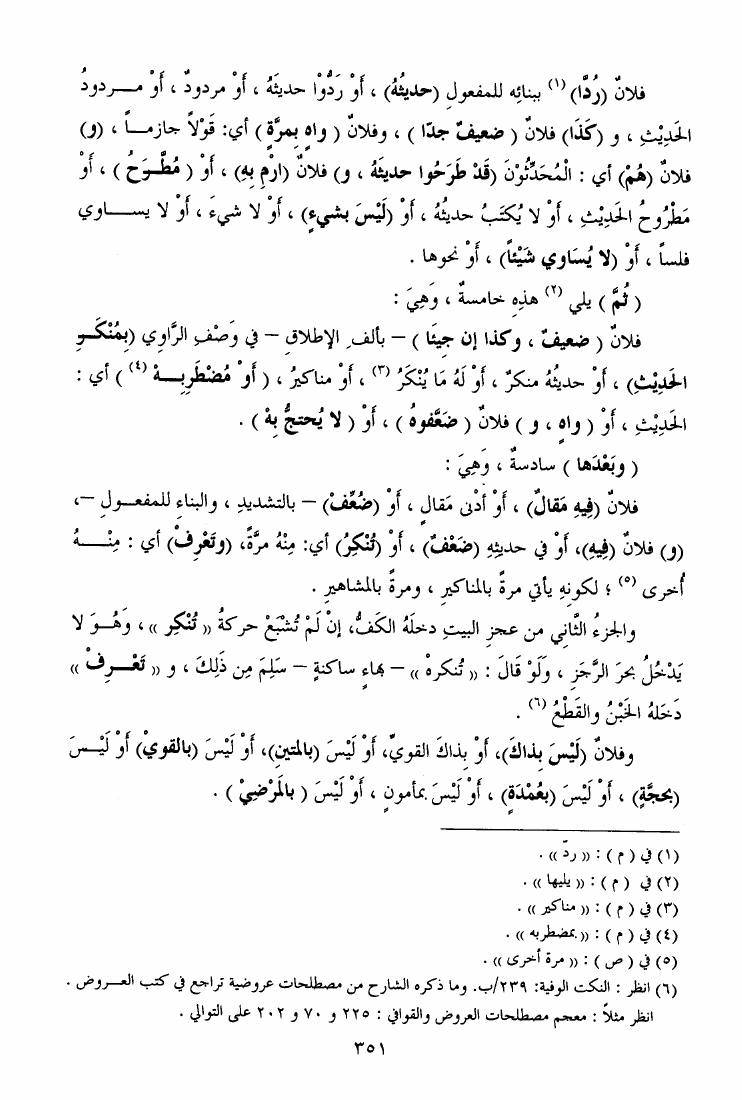 فلانٌ (رُدَّا) (١) ببنائِه للمفعولِ (حديثُهُ) ، أَوْ رَدُّوْا حديثَهُ ، أَوْ مردودٌ ، أَوْ مـــردودُ
الحَدِيْثِ ، و (كَذَا) فلانٌ ( ضعيفٌ جدّا ) ، وفلانٌ ( واهٍ بمرَّة ) أي: قَوْلاً جازمــاً ، (و)
فلانٌ (هُمْ) أي : الْمُحَدِّثُوْنَ (قَدْ طَرَحُوا حديثَهُ ، و) فلانٌ (ارْمِ بِهِ) ، أَوْ ( مُطَّــرَحُ ) ، أَوْ
مَطْرُوحُ الحَدِيْثِ ، أَوْ لا يُكتَبُ حديثُهُ ، أَوْ (لَيْسَ بشيءٍ) ، أَوْ لا شيءَ ، أَوْ لا يســـاوي
فلساً ، أَوْ (لا يُسَاوي شَيْئاً) ، أَوْ نحوها .
( ثُمَّ ) يلي (٢) هذِهِ خامسةٌ ، وَهِيَ :
فلانٌ ( ضعيفٌ ، وكذا إن جيئَا ) – بألفِ الإطلاقِ – في وَصْفِ الرَّاوي (بِمُنْكَــرِ
الحَدِيْثِ) ، أَوْ حديثُهُ منكرٌ ، أَوْ لَهُ مَا يُنْكَرُ (٣) ، أَوْ مناكيرُ ، ( أَو مُضْطَرِبِـــهْ (٤) ) أي :
الحَدِيْثِ ، أَوْ ( واهٍ ، و ) فلانٌ ( ضَعَّفوهُ ) ، أَوْ ( لا يُحتجُّ بِهْ ) .
( وبَعْدَها ) سادسةٌ ، وَهِيَ :
فلانٌ (فِيهِ مَقالٌ) ، أَوْ أدْنى مَقالٍ ، أَوْ (ضُعِّفْ) – بالتشديدِ ، والبناءِ للمفعــولِ –،
(و) فلانٌ (فِيهِ)، أَوْ في حديثِهِ (ضَعْفٌ) ، أَوْ (تُنْكِرُ) أي: مِنْهُ مرَّةً، (وتَعْرِفْ) أي : مِنْـــهُ
أُخرى (٥) ؛ لكونِهِ يأتي مرةً بالمناكيرِ ، ومرةً بالمشاهيرِ .
والجزءُ الثَّاني من عجزِ البيتِ دخلَهُ الكفُّ، إنْ لَمْ تُشْبَعْ حركةُ « تُنْكِر »، وَهُــوَ لا
يَدْخُلُ بحرَ الرَّجَزِ ، وَلَوْ قَالَ : « تُنكرهْ » – بهاءٍ ساكنةٍ – سَلِمَ مِن ذَلِكَ ، و « تَعْـــرِفْ »
دَخلَهُ الخَبْنُ والقَطْعُ (٦) .
وفلانٌ (لَيْسَ بذاكَ)، أَوْ بذاكَ القويِّ، أَوْ لَيْسَ (بالمتينِ)، أَوْ لَيْسَ (بالقويْ) أَوْ لَيْــسَ
(بحجَّةٍ) ، أَوْ لَيْسَ (بعُمْدَةٍ) ، أَوْ لَيْسَ بمأمونٍ ، أَوْ لَيْسَ ( بالمَرْضِيْ ) .
(١) في ( م ) : « ردّ » .
(٢) في ( م ) : « يليها » .
(٣) في ( م ) : « مناكير » .
(٤) في ( م ) : « بمضطربه » .
(٥) في ( ص ) : « مرة أخرى » .
(٦) انظر : النكت الوفية: ٢٣٩/ب. وما ذكره الشارح من مصطلحات عروضية تراجع في كتب العـــروض .
انظر مثلاً : معجم مصطلحات العروض والقوافي : ٢٢٥ و ٧٠ و ٢٠٢ على التوالي .
٣٥١